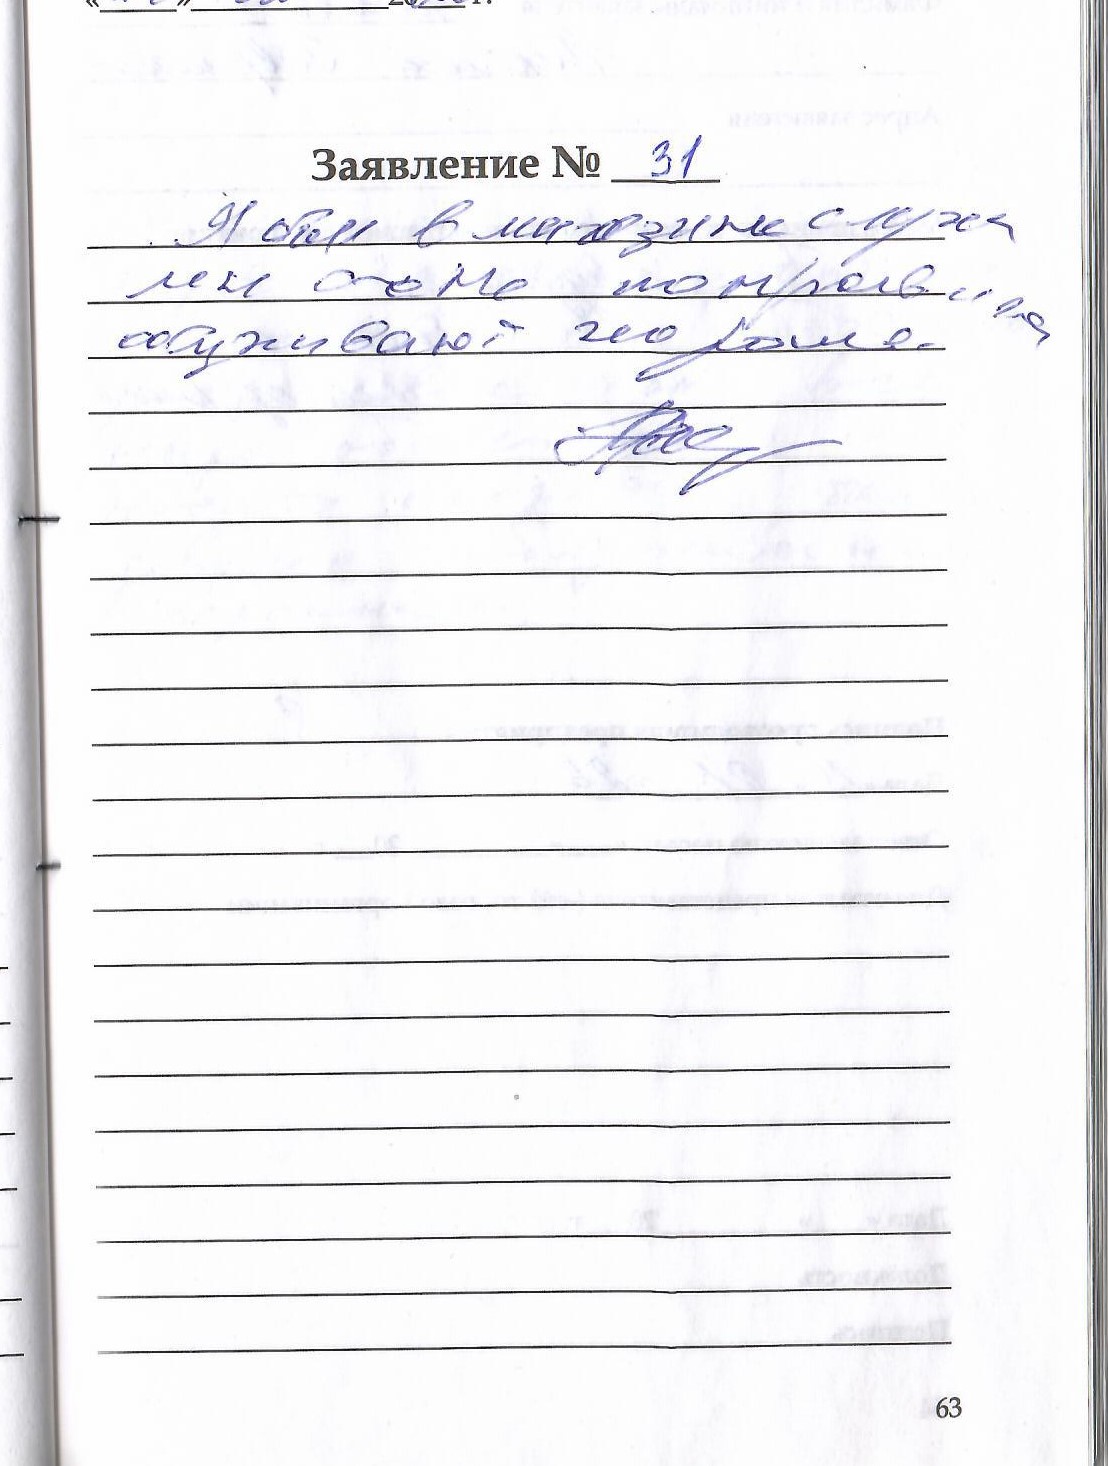 Заявление № 31
Я был в магазине случа
мне очень понравился
обуживают хорошо.
63